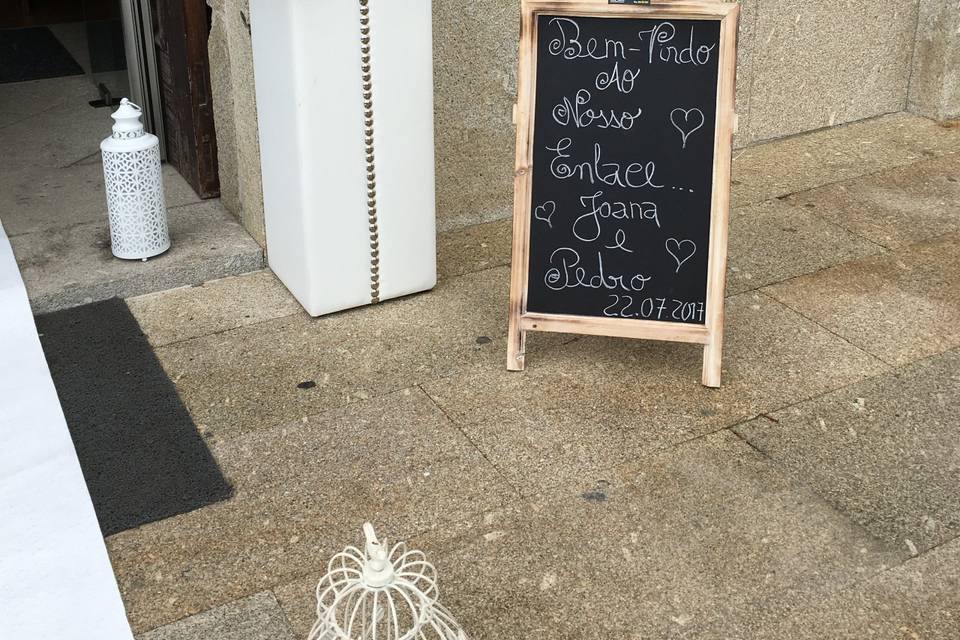 Bem-Vindo
Ao
Nosso
Enlace...
Joana
e
Pedro
22.07.2017